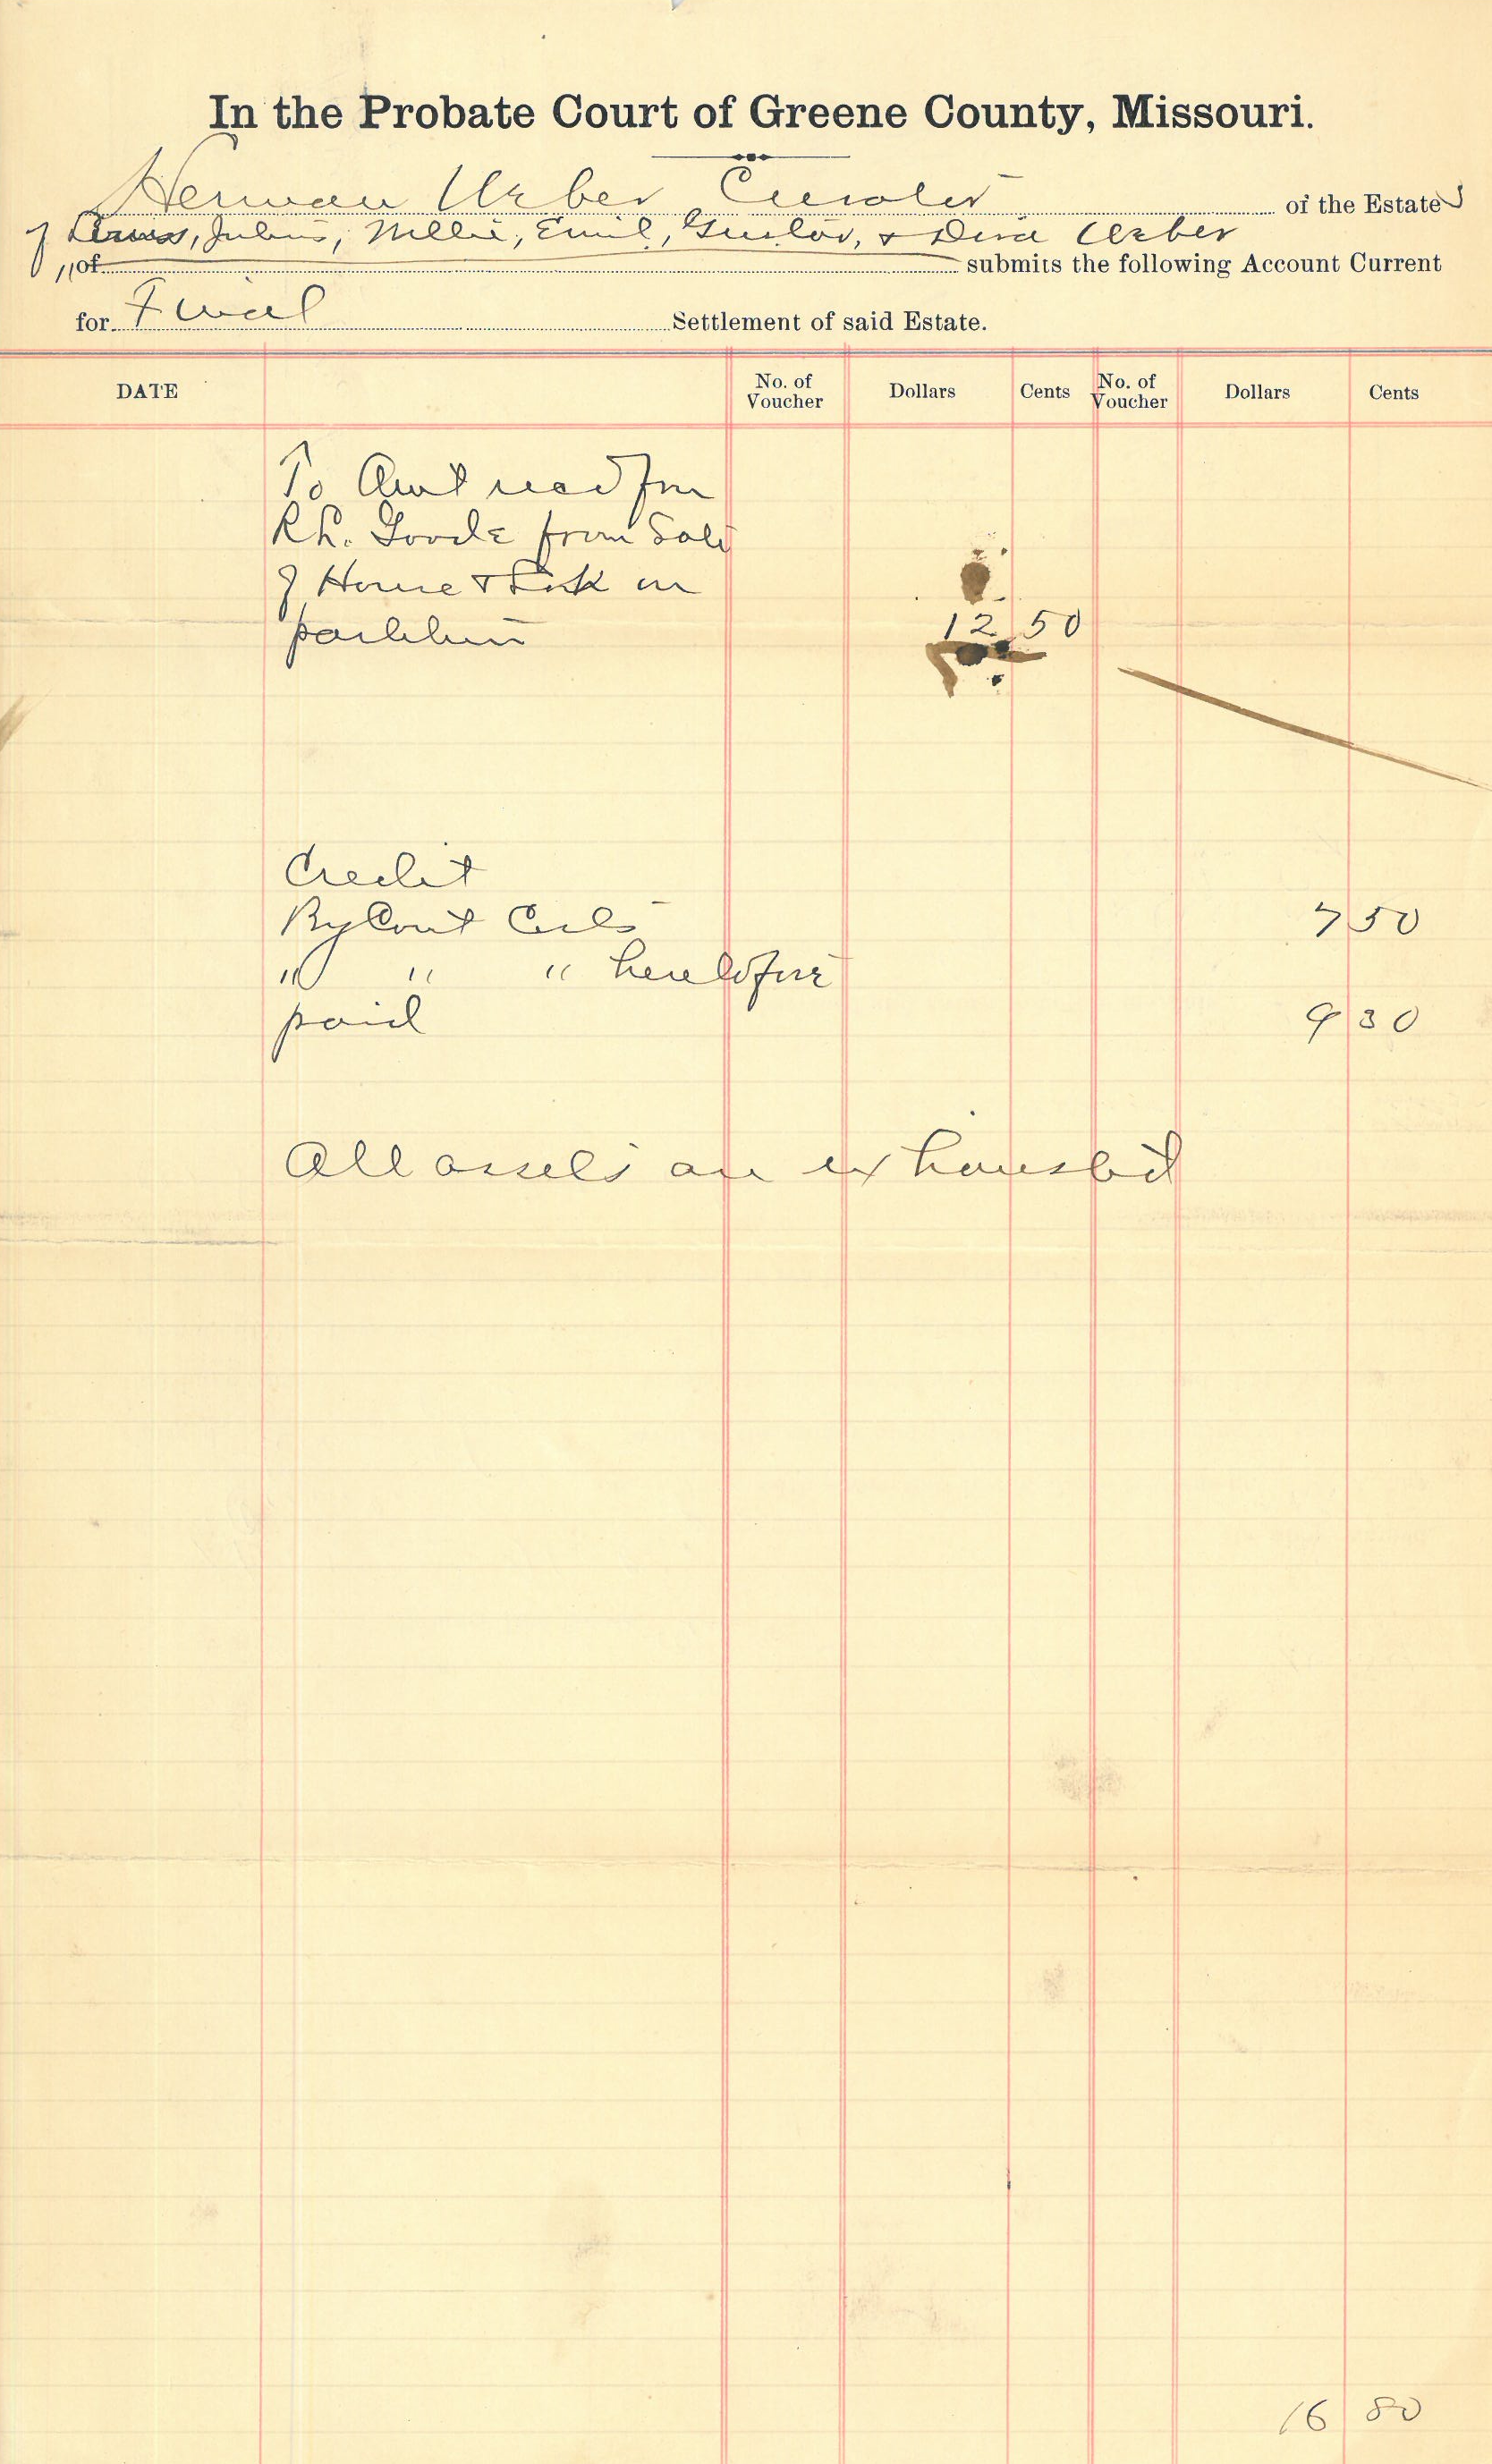 In the Probate Court of Greene County, Missouri.
Herman Urber Curator of the Estates
of Julius, Nellie, Emil, Gustav, & Dora Urber
of submits the following Account Current
for Final Settlement of said Estate.
DATE No. of Voucher Dollars Cents No. of Voucher Dollars Cents
To Amt recd from
Goode from Sale
of House & Lot in
partition 12 50
Credit
By Court Costs 7 50
" " " heretofore
paid 9 30
All assets are exhausted
16 80